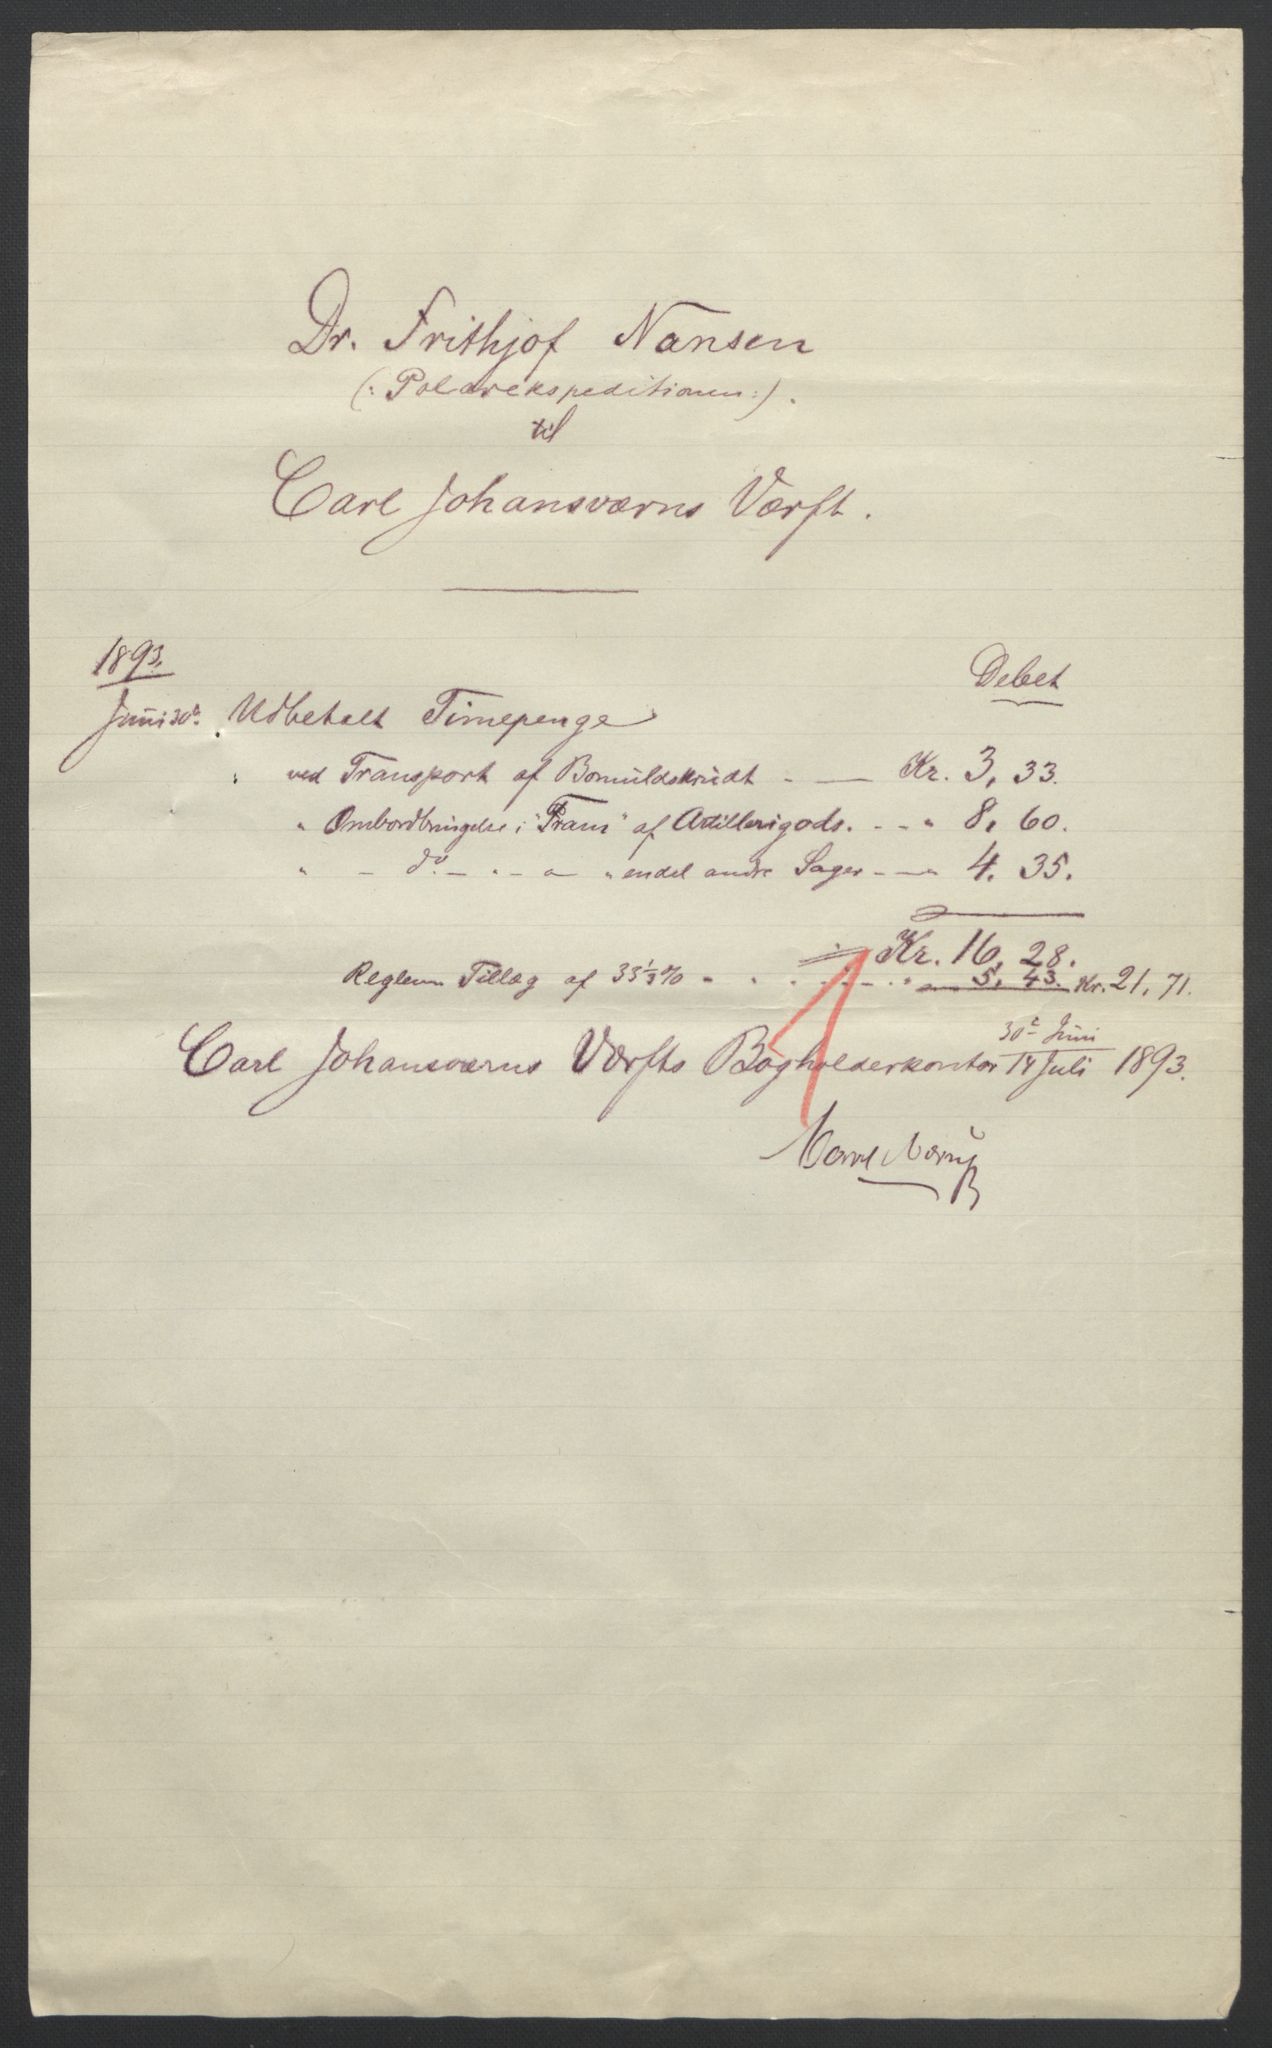 Dr. Frithjof Nansen
(: Polarekspeditionen :).
til
Carl Johansværns Værft.
1893.
Debet
Juni 30te Udbetalt Timepenge
" ved Transport af Bomuldskrudt - — Kr. 3,33.
" Ombordbringelse i "Fram" af Artillerigods. - - " 8,60.
" - do. - " - " - " endel andre Sager - — " 4.35.
Kr. 16,28.
Reglem. Tillæg af 33⅓% " " - - - " 5,43. Kr. 21,71.
30te Juni
Carl Johansværns Værfts Bogholderkontor 14 Juli 1893.